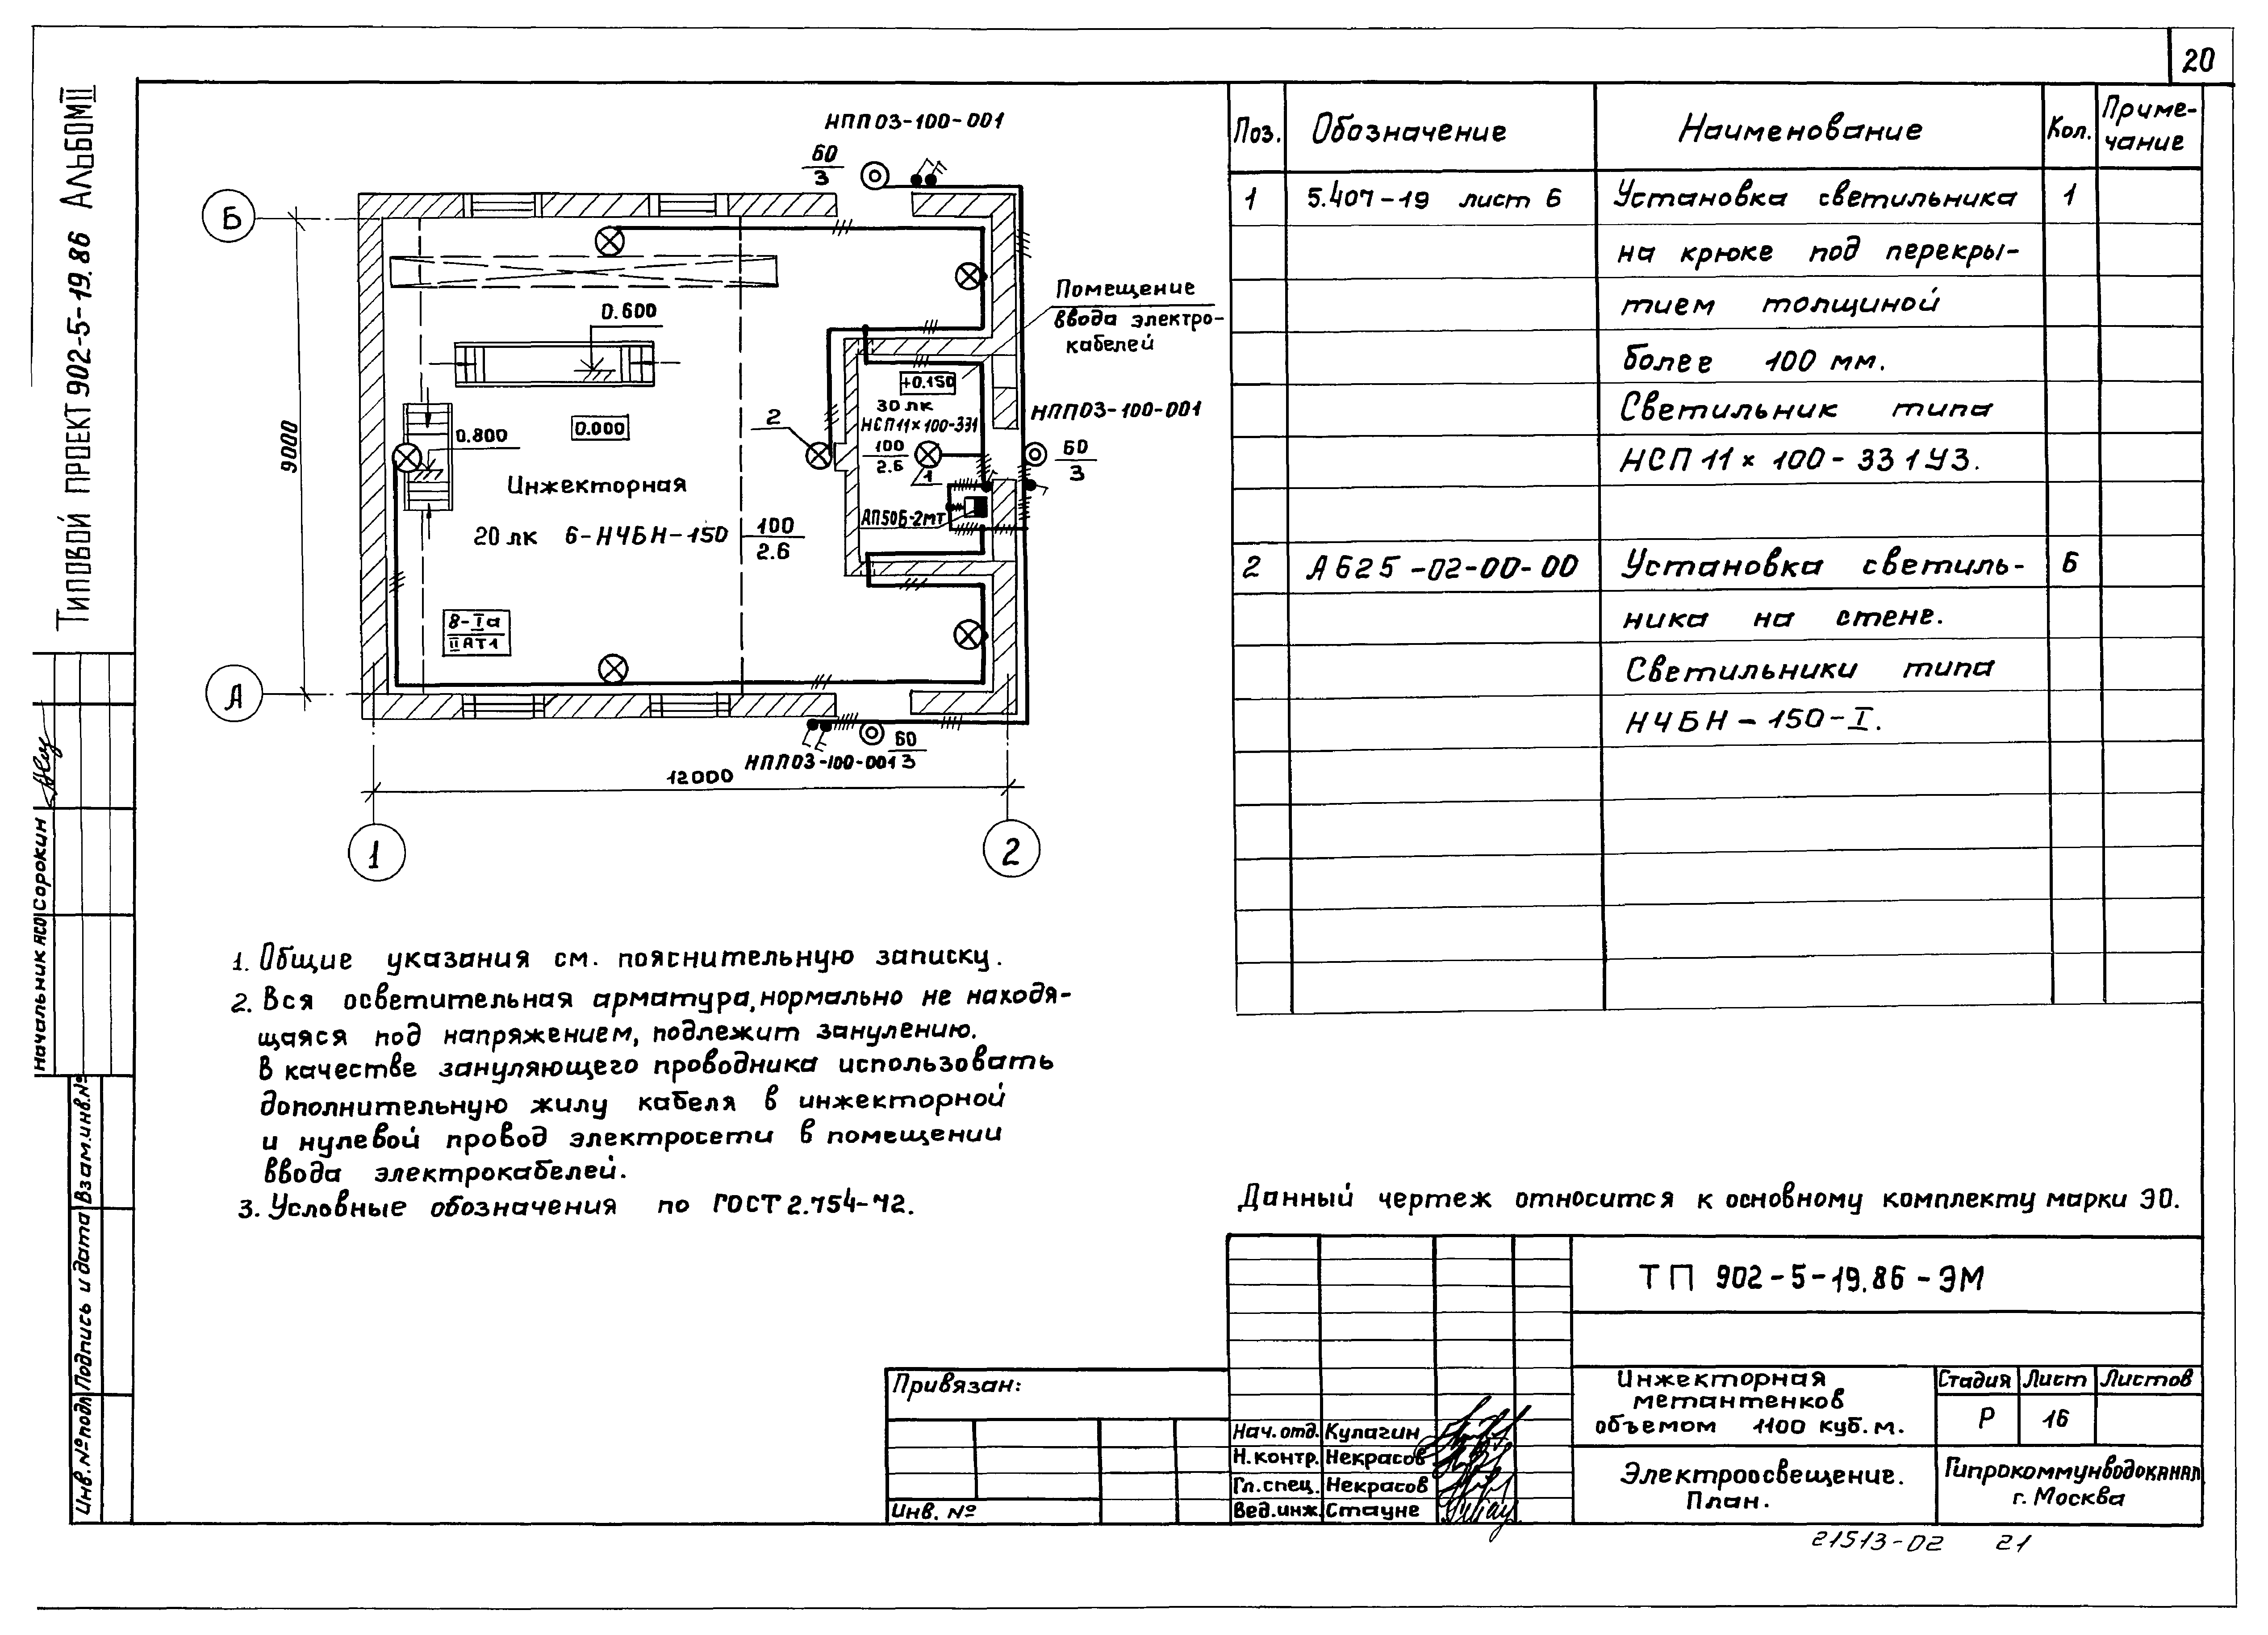 20
Типовой проект 902-5-19.86 Альбом II
НПП03-100-001
60
3
Б
9000
А
0.600
+0.150
30 лк
НСП11×100-331
100
2.6
1
2
0.800
0.000
Инжекторная
20 лк 6-НЧБН-150 100
2.6
АП50Б-2МТ
8-Iа
IIАТ1
Помещение
ввода электро-
кабелей
НПП03-100-001
60
3
60
НПП03-100-001 3
12000
1
2
1. Общие указания см. пояснительную записку.
2. Вся осветительная арматура, нормально не находя-
щаяся под напряжением, подлежит занулению.
В качестве зануляющего проводника использовать
дополнительную жилу кабеля в инжекторной
и нулевой провод электросети в помещении
ввода электрокабелей.
3. Условные обозначения по ГОСТ 2.754-72.
Поз. Обозначение Наименование Кол. Приме-
чание
1 5.407-19 лист 6 Установка светильника 1
на крюке под перекры-
тием толщиной
более 100 мм.
Светильник типа
НСП 11× 100-331У3.
2 А625-02-00-00 Установка светиль- 6
ника на стене.
Светильники типа
НЧБН-150-I.
Данный чертеж относится к основному комплекту марки ЭО.
ТП 902-5-19.86-ЭМ
Инжекторная
метантенков
объемом 1100 куб.м.
Стадия Лист Листов
Р 16
Электроосвещение.
План.
Гипрокоммунводоканал
г. Москва
Привязан:
Инв. №
Нач. отд. Кулагин
Н. контр. Некрасов
Гл. спец. Некрасов
Вед. инж. Стауне
Начальник АСО Сорокин
Взам.инв.№
Подпись и дата
Инв. № подл
21513-02 21